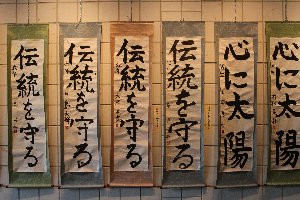 伝統を守る
伝統を守る
伝統を守る
伝統を守る
心に太陽
心に太陽